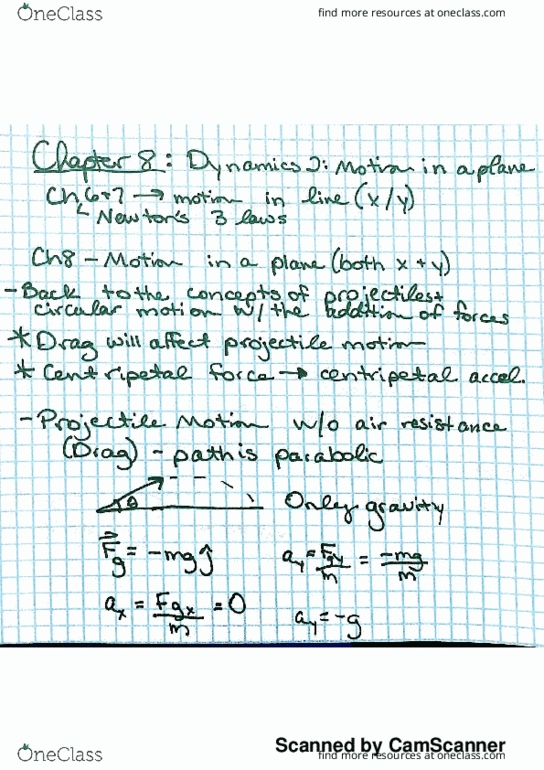 OneClass
find more resources at oneclass.com
Chapter 8: Dynamics 2: Motion in a plane
Ch 6+7 → motion in line (x/y)
Newton's 3 laws
Ch8 - Motion in a plane (both x + y)
- Back to the concepts of projectiles +
circular motion w/ the addition of forces
* Drag will affect projectile motion
* Centripetal force → centripetal accel.
- Projectile Motion w/o air resistance
(Drag) - path is parabolic
θ
Only gravity
F⃗g = -mgĵ
ay = Fgy/m = -mg/m
ax = Fgx/m = 0
ay = -g
Scanned by CamScanner
OneClass
find more resources at oneclass.com